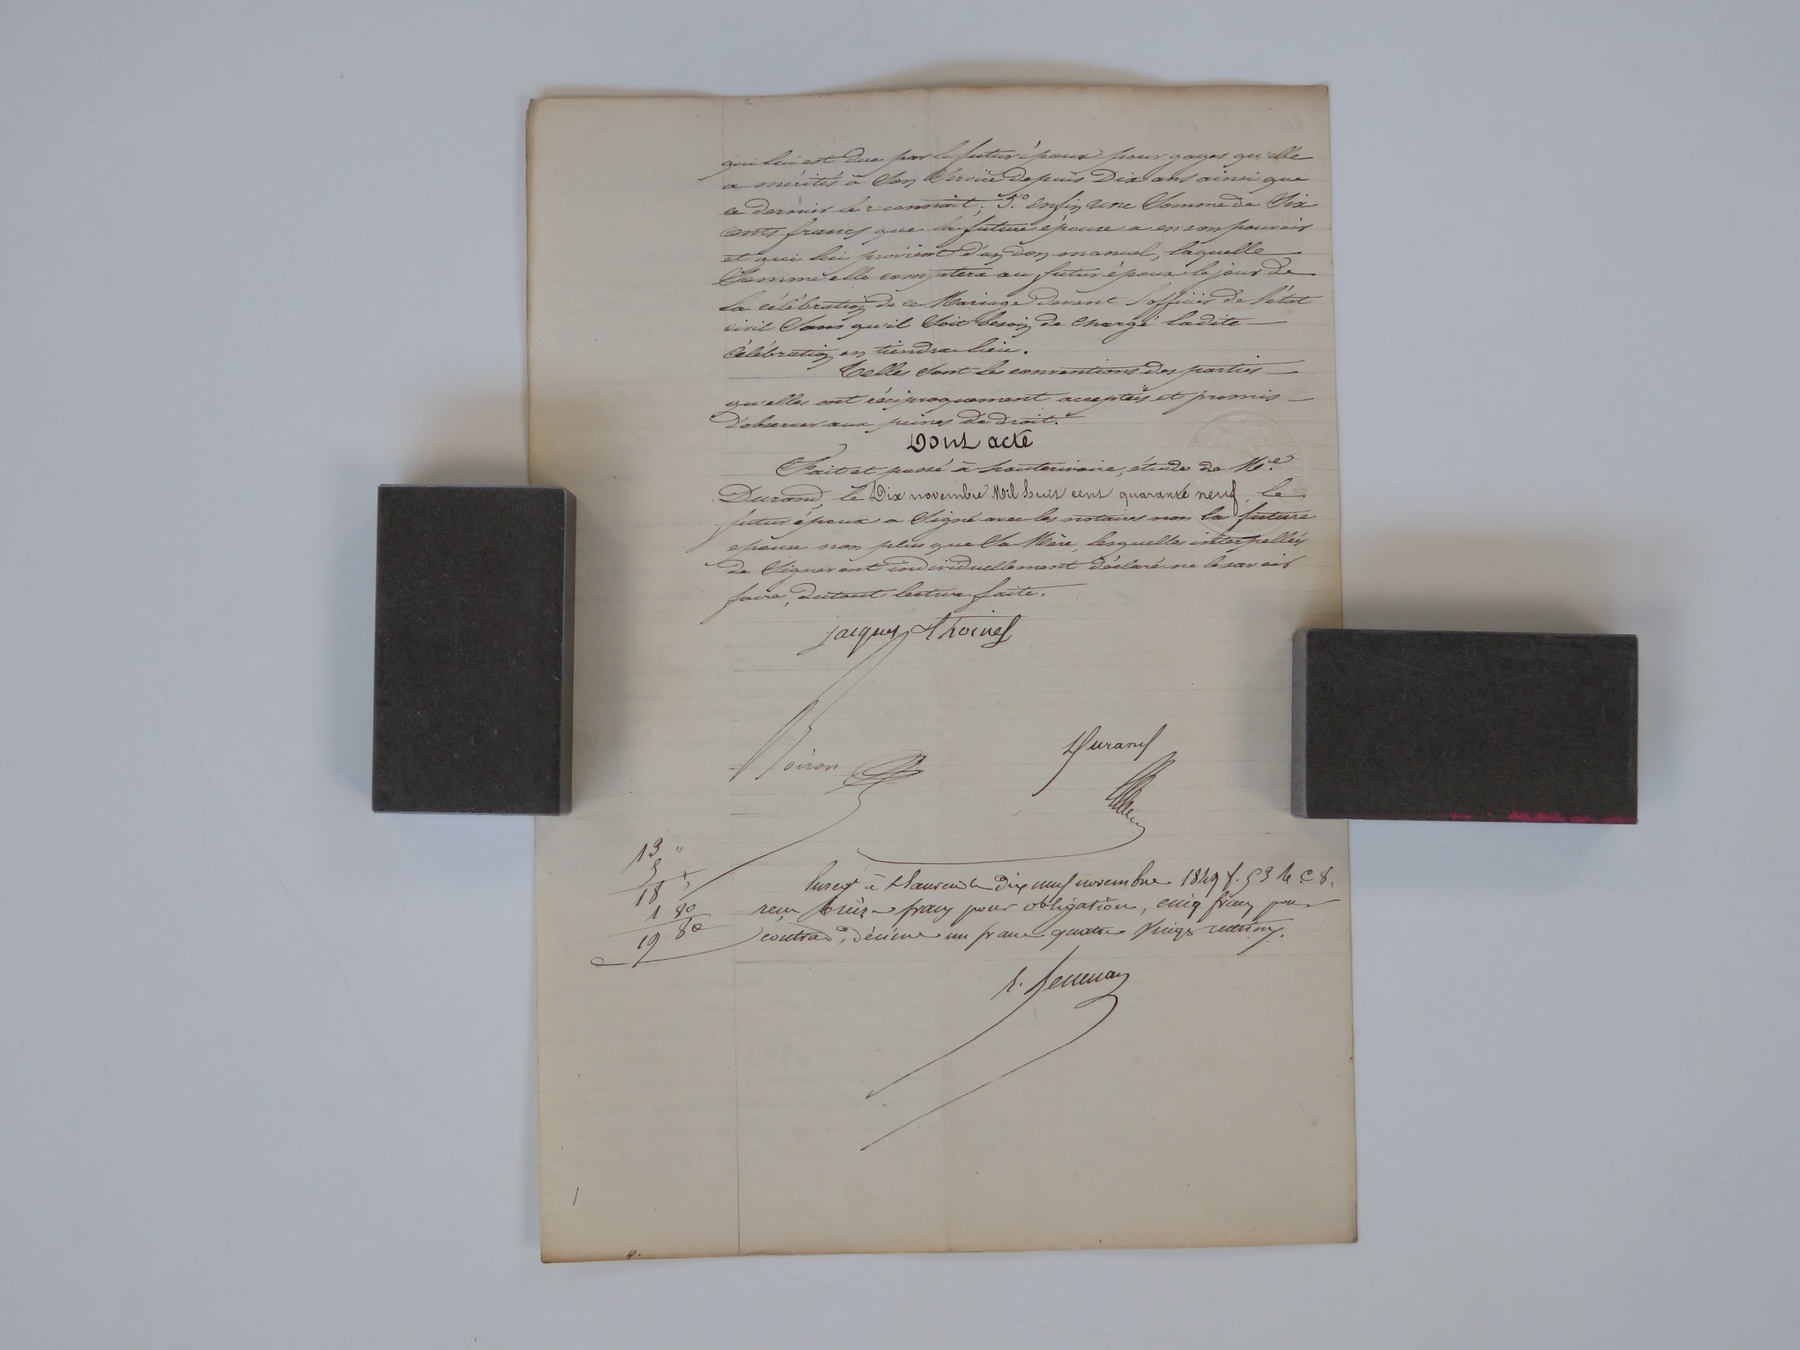 qui lui est due par le futur époux pour gages qu'elle
a mérités à Son Service depuis Dix ans ainsi que
ce dernier le reconnait; 5.° enfin une Somme de Six
cents francs que la future épouse a en son pouvoir
et qui lui provient d'un don manuel, laquelle
Somme elle comptera au futur époux le jour de
la célébration de ce Mariage devant l'officier de l'état
civil Sans qu'il Soit besoin de charge ladite
Célébration en tiendra lieu.
Telles Sont les conventions des parties
qu'elles ont réciproquement acceptées et promis
d'observer aux peines de droit.
Dont acte
Fait et passé à hauterivoire, étude de M.e
Durand, le Dix novembre Mil huit cent quarante neuf, le
futur époux a Signé avec les notaires non la future
épouse non plus que Sa Mère, lesquelles interpellées
de Signer ont individuellement déclaré ne le savoir
faire, du tout lecture faite.
jacques
Durand
Poiron
13 "
5
18 "
1 80
19 80
Enreg à St Laurent le dix neuf novembre 1849 f. 53 r c 8,
reçu treize francs pour obligation, cinq francs pour
contrat, décime un franc quatre vingt centimes.